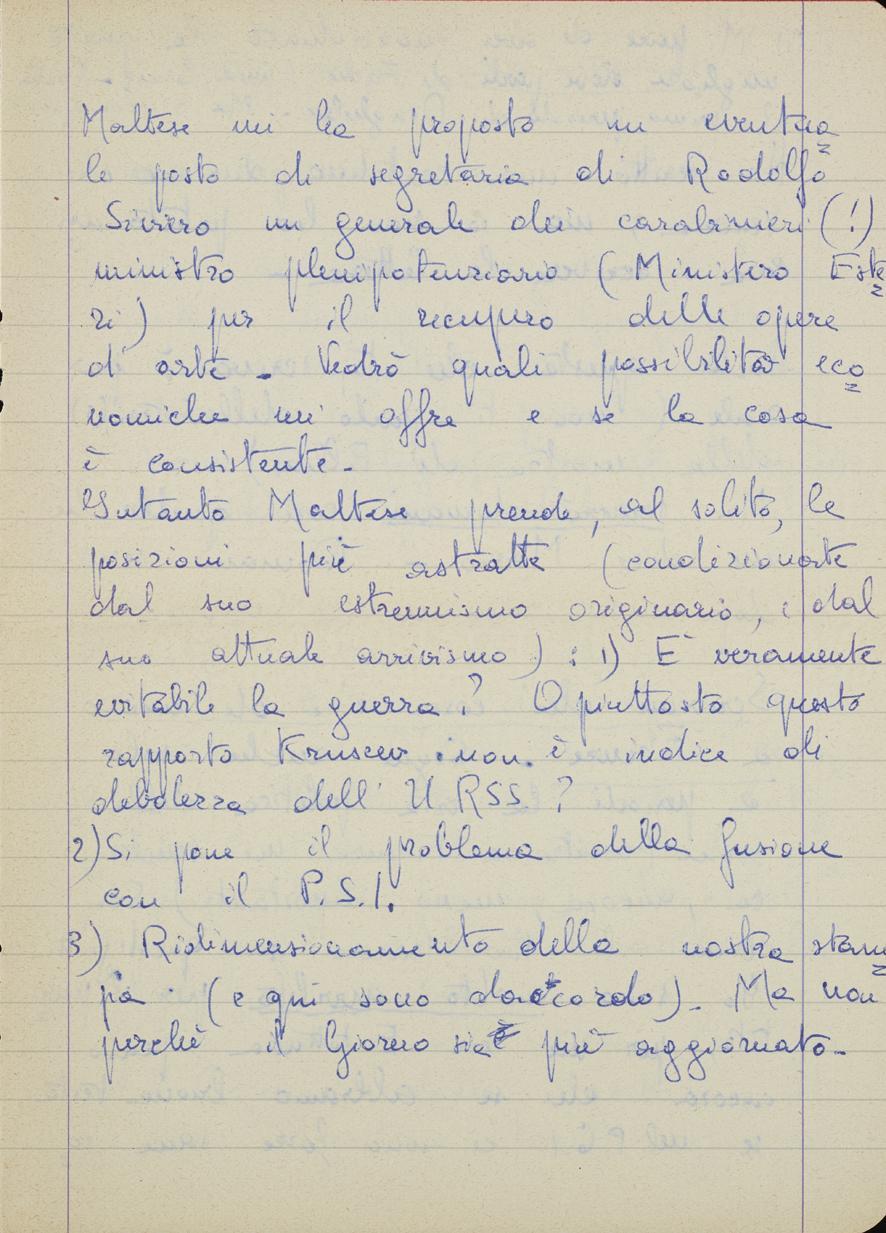 Maltese mi ha proposto un eventua
le posto di segretaria di Rodolfo
Siviero un generale dei carabinieri (!)
ministro plenipotenziario (Ministero Este
ri) per il recupero delle opere
di arte. Vedrò quali possibilità eco
nomiche mi offre e se la cosa
è consistente.
Intanto Maltese prende, al solito, le
posizioni più astratte (condizionate
dal suo estremismo originario, e dal
suo attuale arrivismo) : 1) È veramente
evitabile la guerra? O piuttosto questo
rapporto Kruscev non è indice di
debolezza dell' U.RSS. ?
2) Si pone il problema della fusione
con il P.S.I.
3) Ridimensionamento della nostra stam
pa (e qui sono daccordo). Ma non
perchè il Giorno sia più aggiornato.